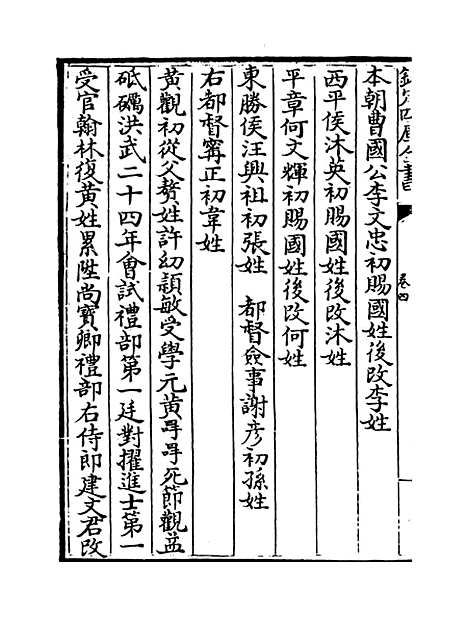 欽定四庫全書
卷四
本朝曹國公李文忠初賜國姓後改李姓
西平侯沐英初賜國姓後改沐姓
平章何文輝初賜國姓後改何姓
東勝侯汪興祖初張姓 都督僉事謝彥初孫姓
右都督甯正初韋姓
黃觀初從父贅姓許幼頴敏受學元黃哻哻死節觀益
砥礪洪武二十四年會試禮部第一廷對擢進士第一
受官翰林復黃姓累陞尚寶卿禮部右侍郎建文君改